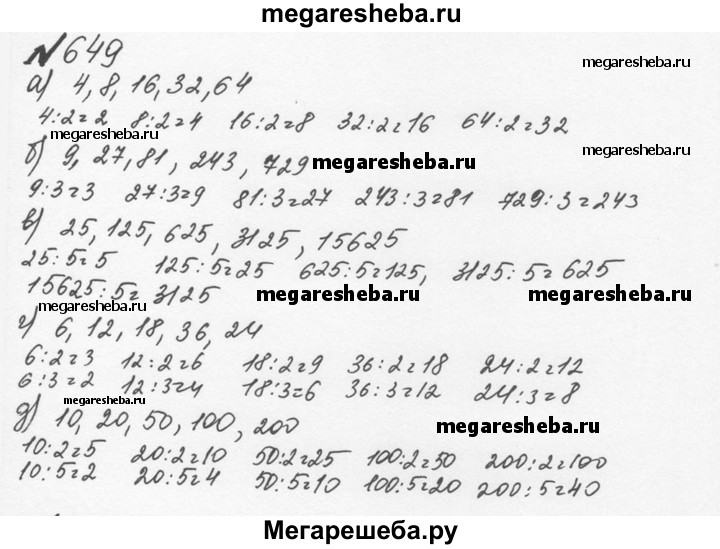 megaresheba.ru
№649
megaresheba.ru
а) 4, 8, 16, 32, 64
4:2=2 8:2=4 16:2=8 32:2=16 64:2=32
megaresheba.ru
megaresheba.ru
б) 9, 27, 81, 243, 729
megaresheba.ru
9:3=3 27:3=9 81:3=27 243:3=81 729:3=243
в) 25, 125, 625, 3125, 15625
25:5=5 125:5=25 625:5=125, 3125:5=625
15625:5=3125
megaresheba.ru
megaresheba.ru
megaresheba.ru
г) 6, 12, 18, 36, 24
6:2=3 12:2=6 18:2=9 36:2=18 24:2=12
6:3=2 12:3=4 18:3=6 36:3=12 24:3=8
megaresheba.ru
д) 10, 20, 50, 100, 200
megaresheba.ru
10:2=5 20:2=10 50:2=25 100:2=50 200:2=100
10:5=2 20:5=4 50:5=10 100:5=20 200:5=40
Мегарешеба.ру